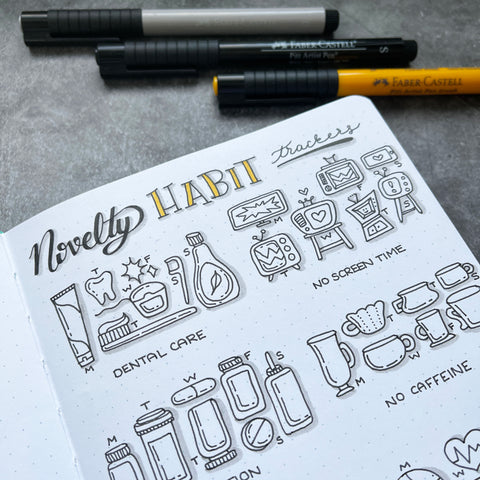 FABER-CASTELL
Pitt Artist Pen
S
FABER-CASTELL
Pitt Artist Pen brush
Novelty HABIT trackers
M T W T F S S
DENTAL CARE
M T W T F S S
NO SCREEN TIME
M T W T F S S
ION
M T W T F S S
NO CAFFEINE